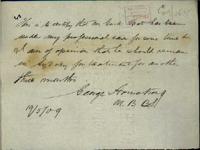 This is to certify that Mr
has been
under my professional care for some time &
I am of opinion that he should remain
in Sydney for treatment for another
three months.
George Armstrong
M. B.
19/5/09